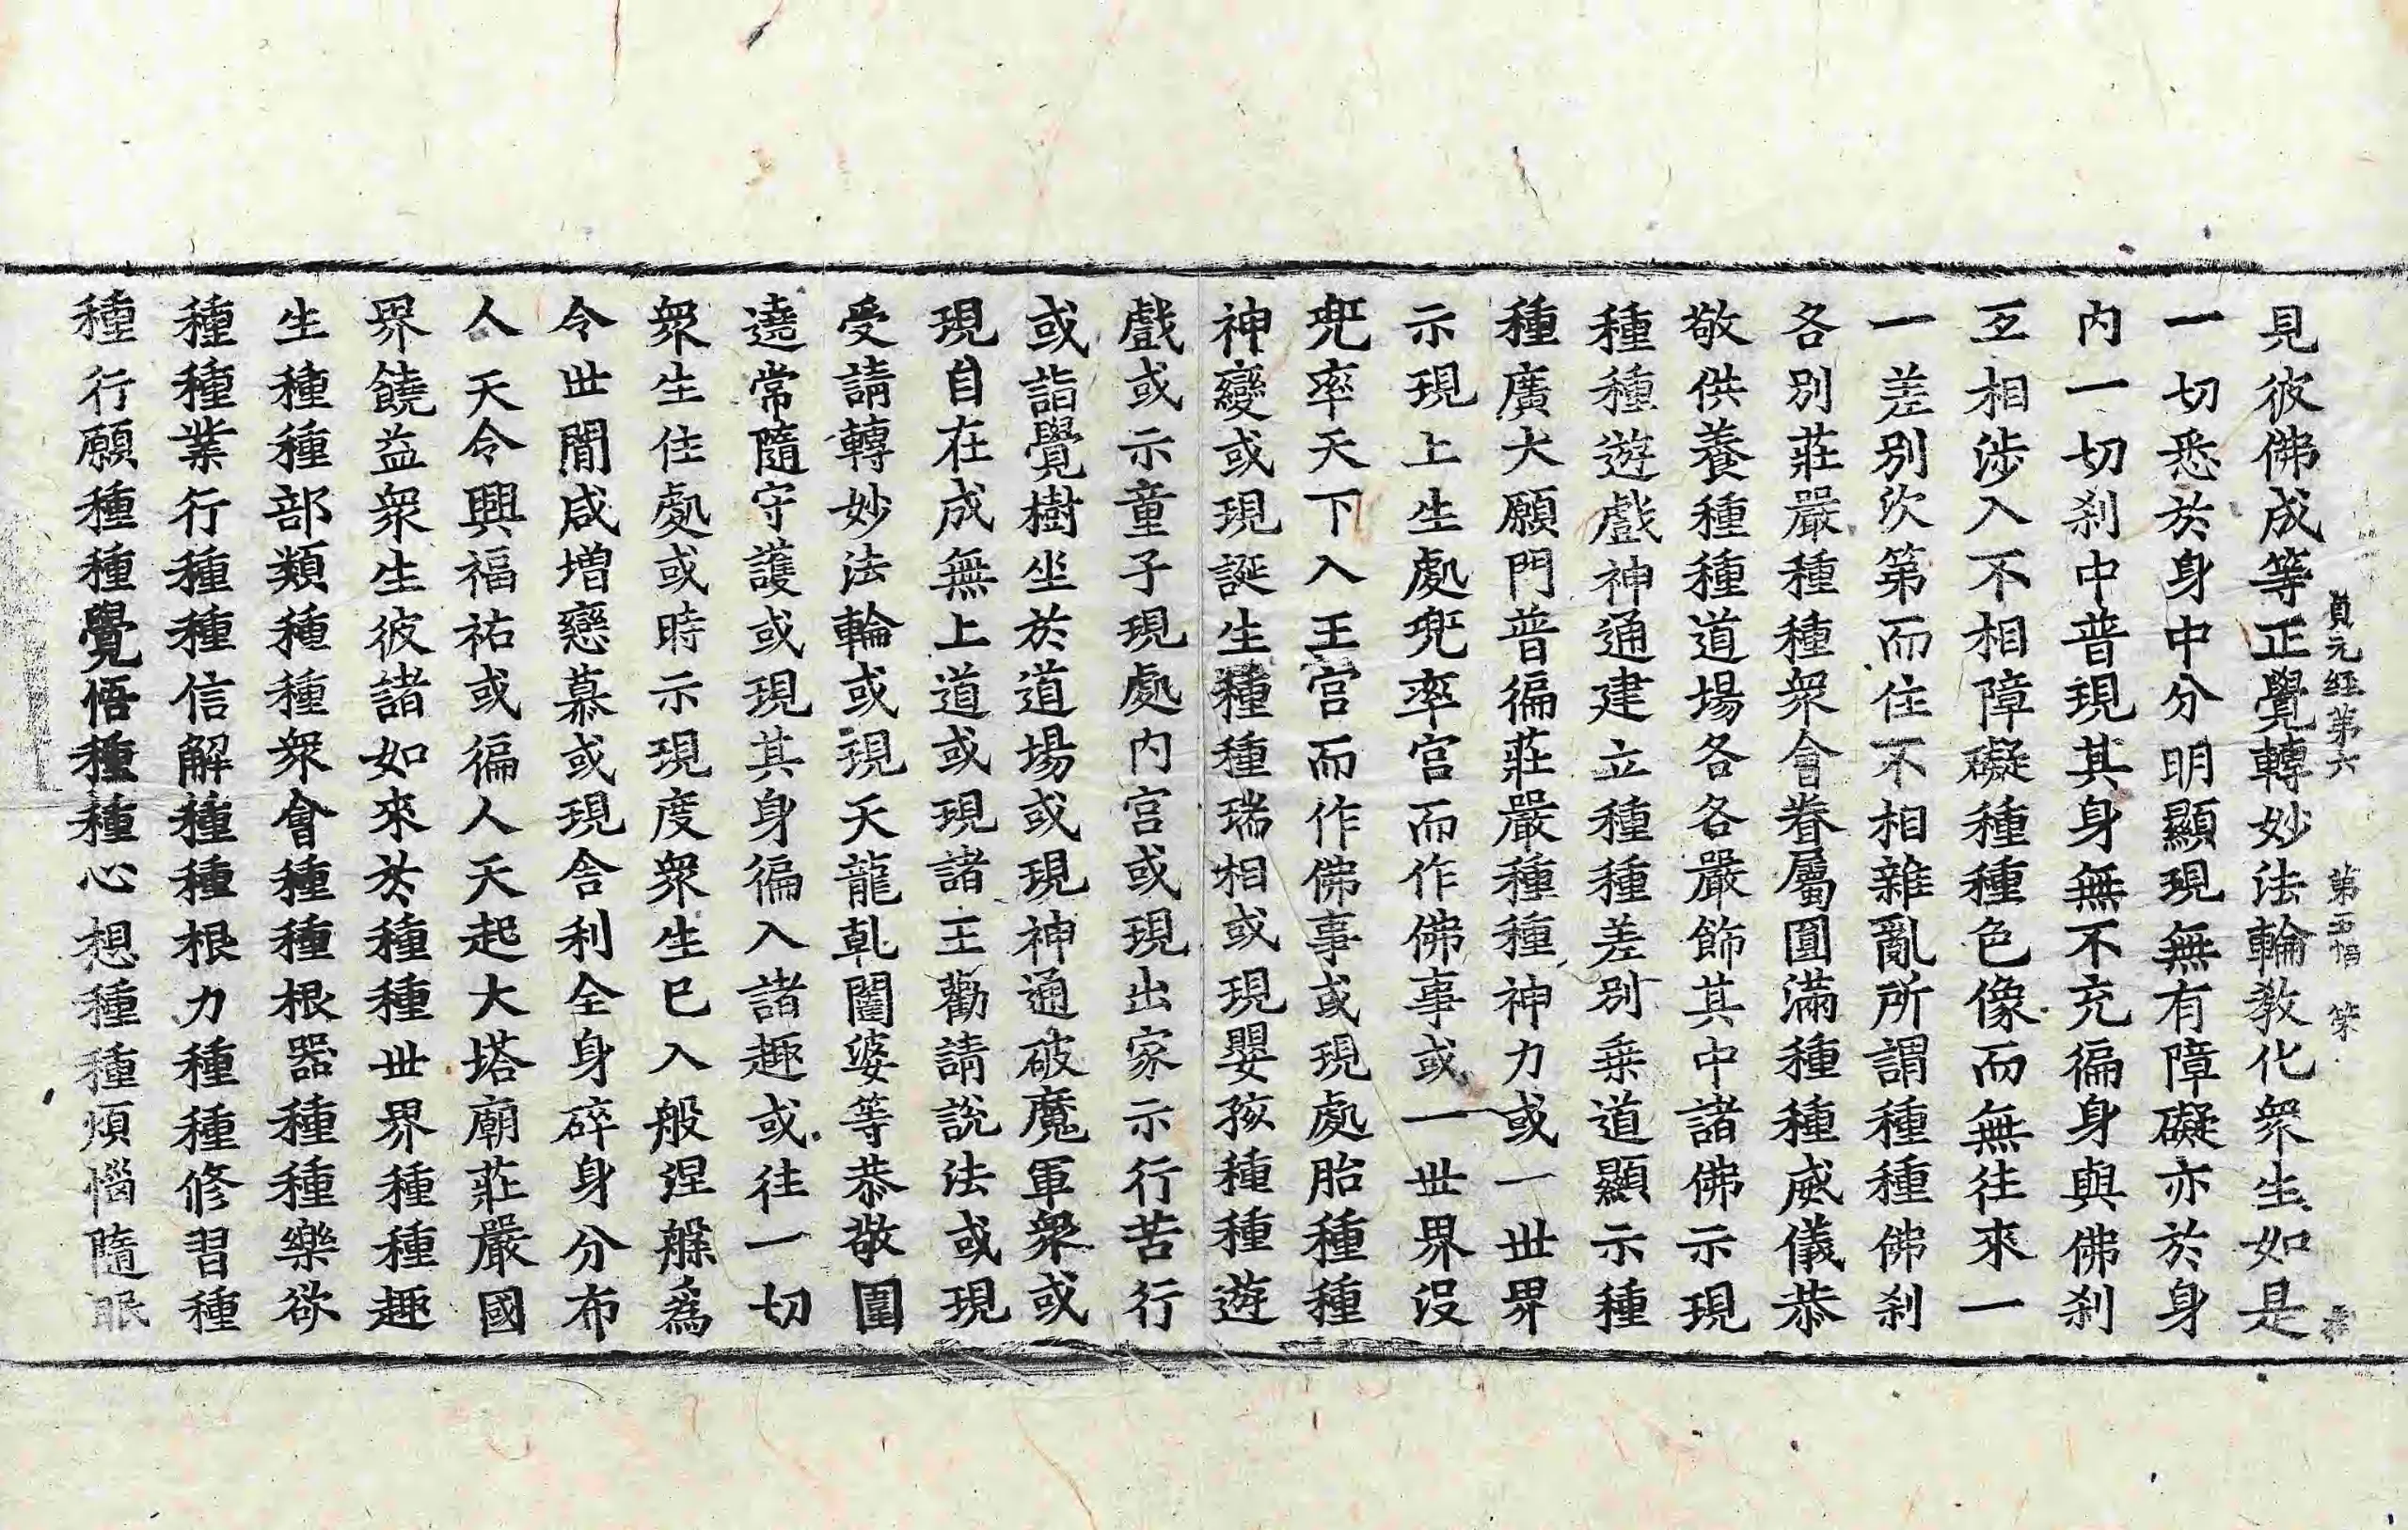 貞元經第六 第五幅 策
見彼佛成等正覺轉妙法輪教化衆生如是
一切悉於身中分明顯現無有障礙亦於身
内一切刹中普現其身無不充徧身與佛刹
互相涉入不相障礙種種色像而無往來一
一差别次第而住不相雜亂所謂種種佛刹
各别莊嚴種種衆會眷屬圓滿種種威儀恭
敬供養種種道場各各嚴飾其中諸佛示現
種種遊戲神通建立種種差别乗道顯示種
種廣大願門普徧莊嚴種種神力或一世界
示現上生處兜率宫而作佛事或一世界沒
兜率天下入王宫而作佛事或現處胎種種
神變或現誕生種種瑞相或現嬰孩種種遊
戲或示童子現處内宫或現出家示行苦行
或詣覺樹坐於道場或現神通破魔軍衆或
現自在成無上道或現諸王勸請說法或現
受請轉妙法輪或現天龍乹闥婆等恭敬圍
遶常隨守護或現其身徧入諸趣或往一切
衆生住處或時示現度衆生已入般涅槃爲
令世間咸增戀慕或現舎利全身碎身分布
人天令興福祐或徧人天起大塔廟莊嚴國
界饒益衆生彼諸如來於種種世界種種趣
生種種部類種種衆會種種根器種種樂欲
種種業行種種信解種種根力種種修習種
種行願種種覺悟種種心想種種煩惱隨眠